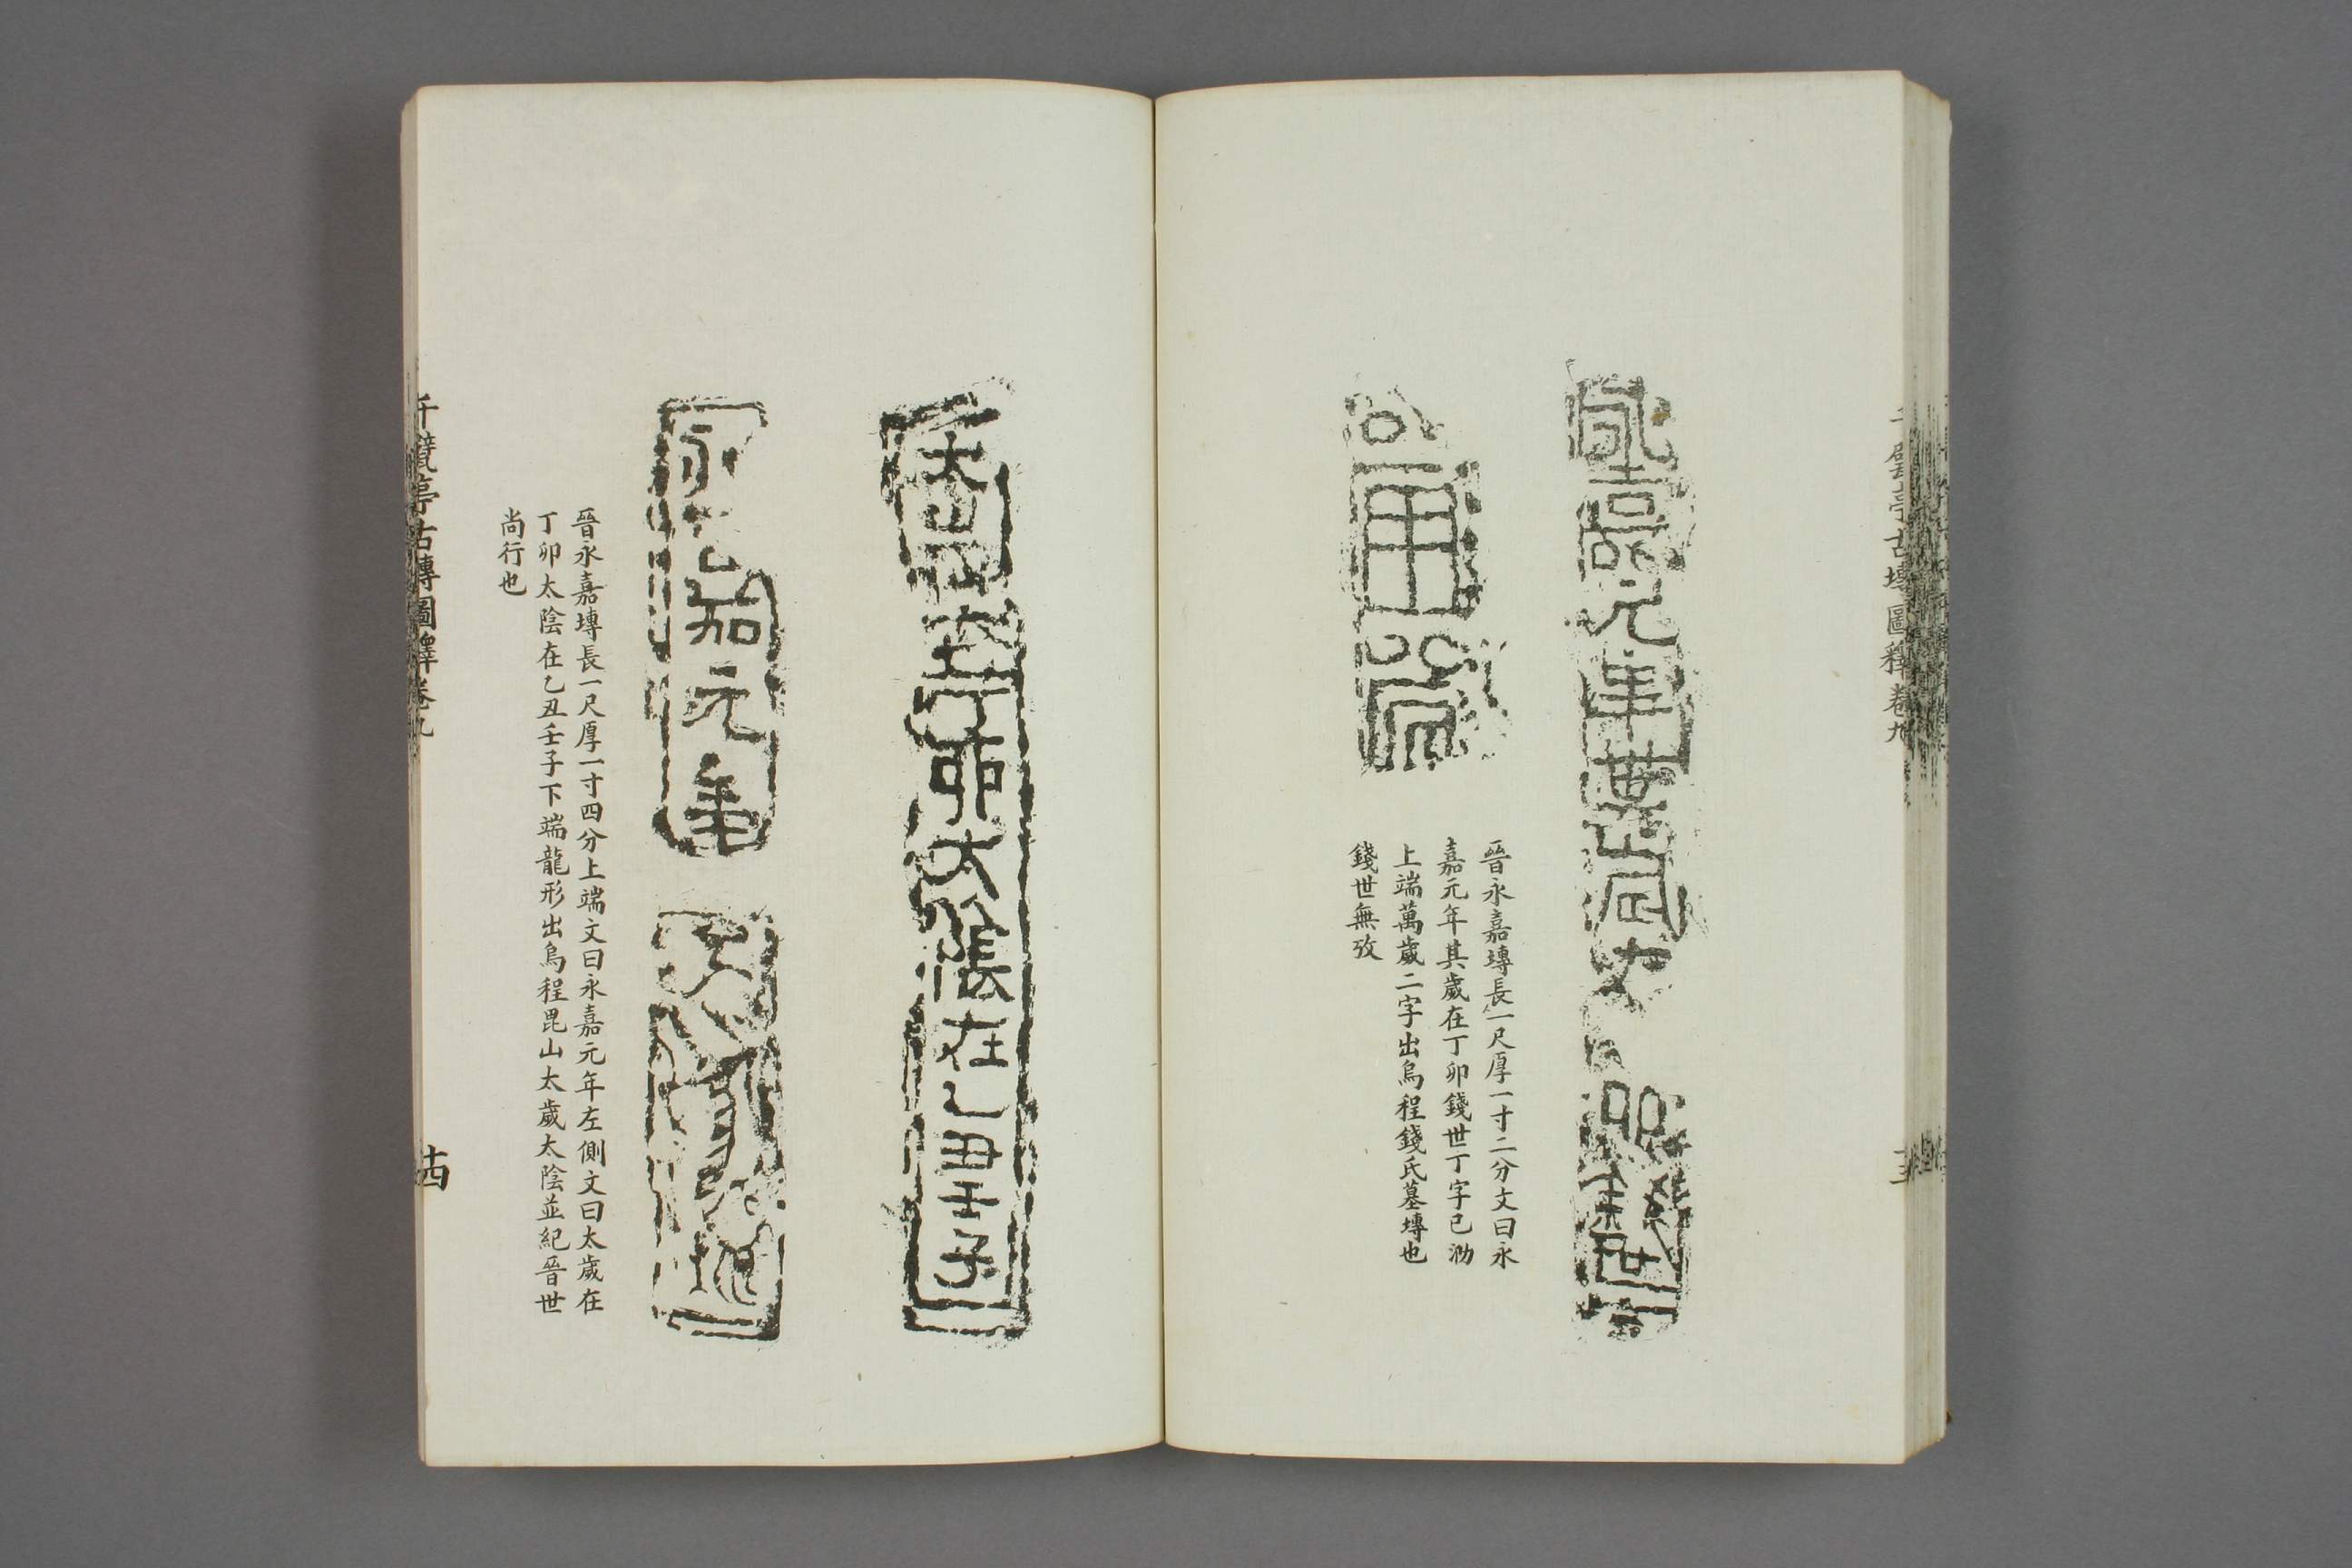 永嘉元年其歲在 卯錢世
萬歲
晉永嘉塼長一尺厚一寸二分文曰永
嘉元年其歲在丁卯錢世丁字已泐
上端萬歲二字出烏程錢氏墓塼也
錢世無攷
太歲在丁卯太陰在乙丑壬子
永嘉元年
晉永嘉塼長一尺厚一寸四分上端文曰永嘉元年左側文曰太歲在
丁卯太陰在乙丑壬子下端龍形出烏程毘山太歲太陰並紀晉世
尚行也
千甓亭古塼圖釋卷九
古